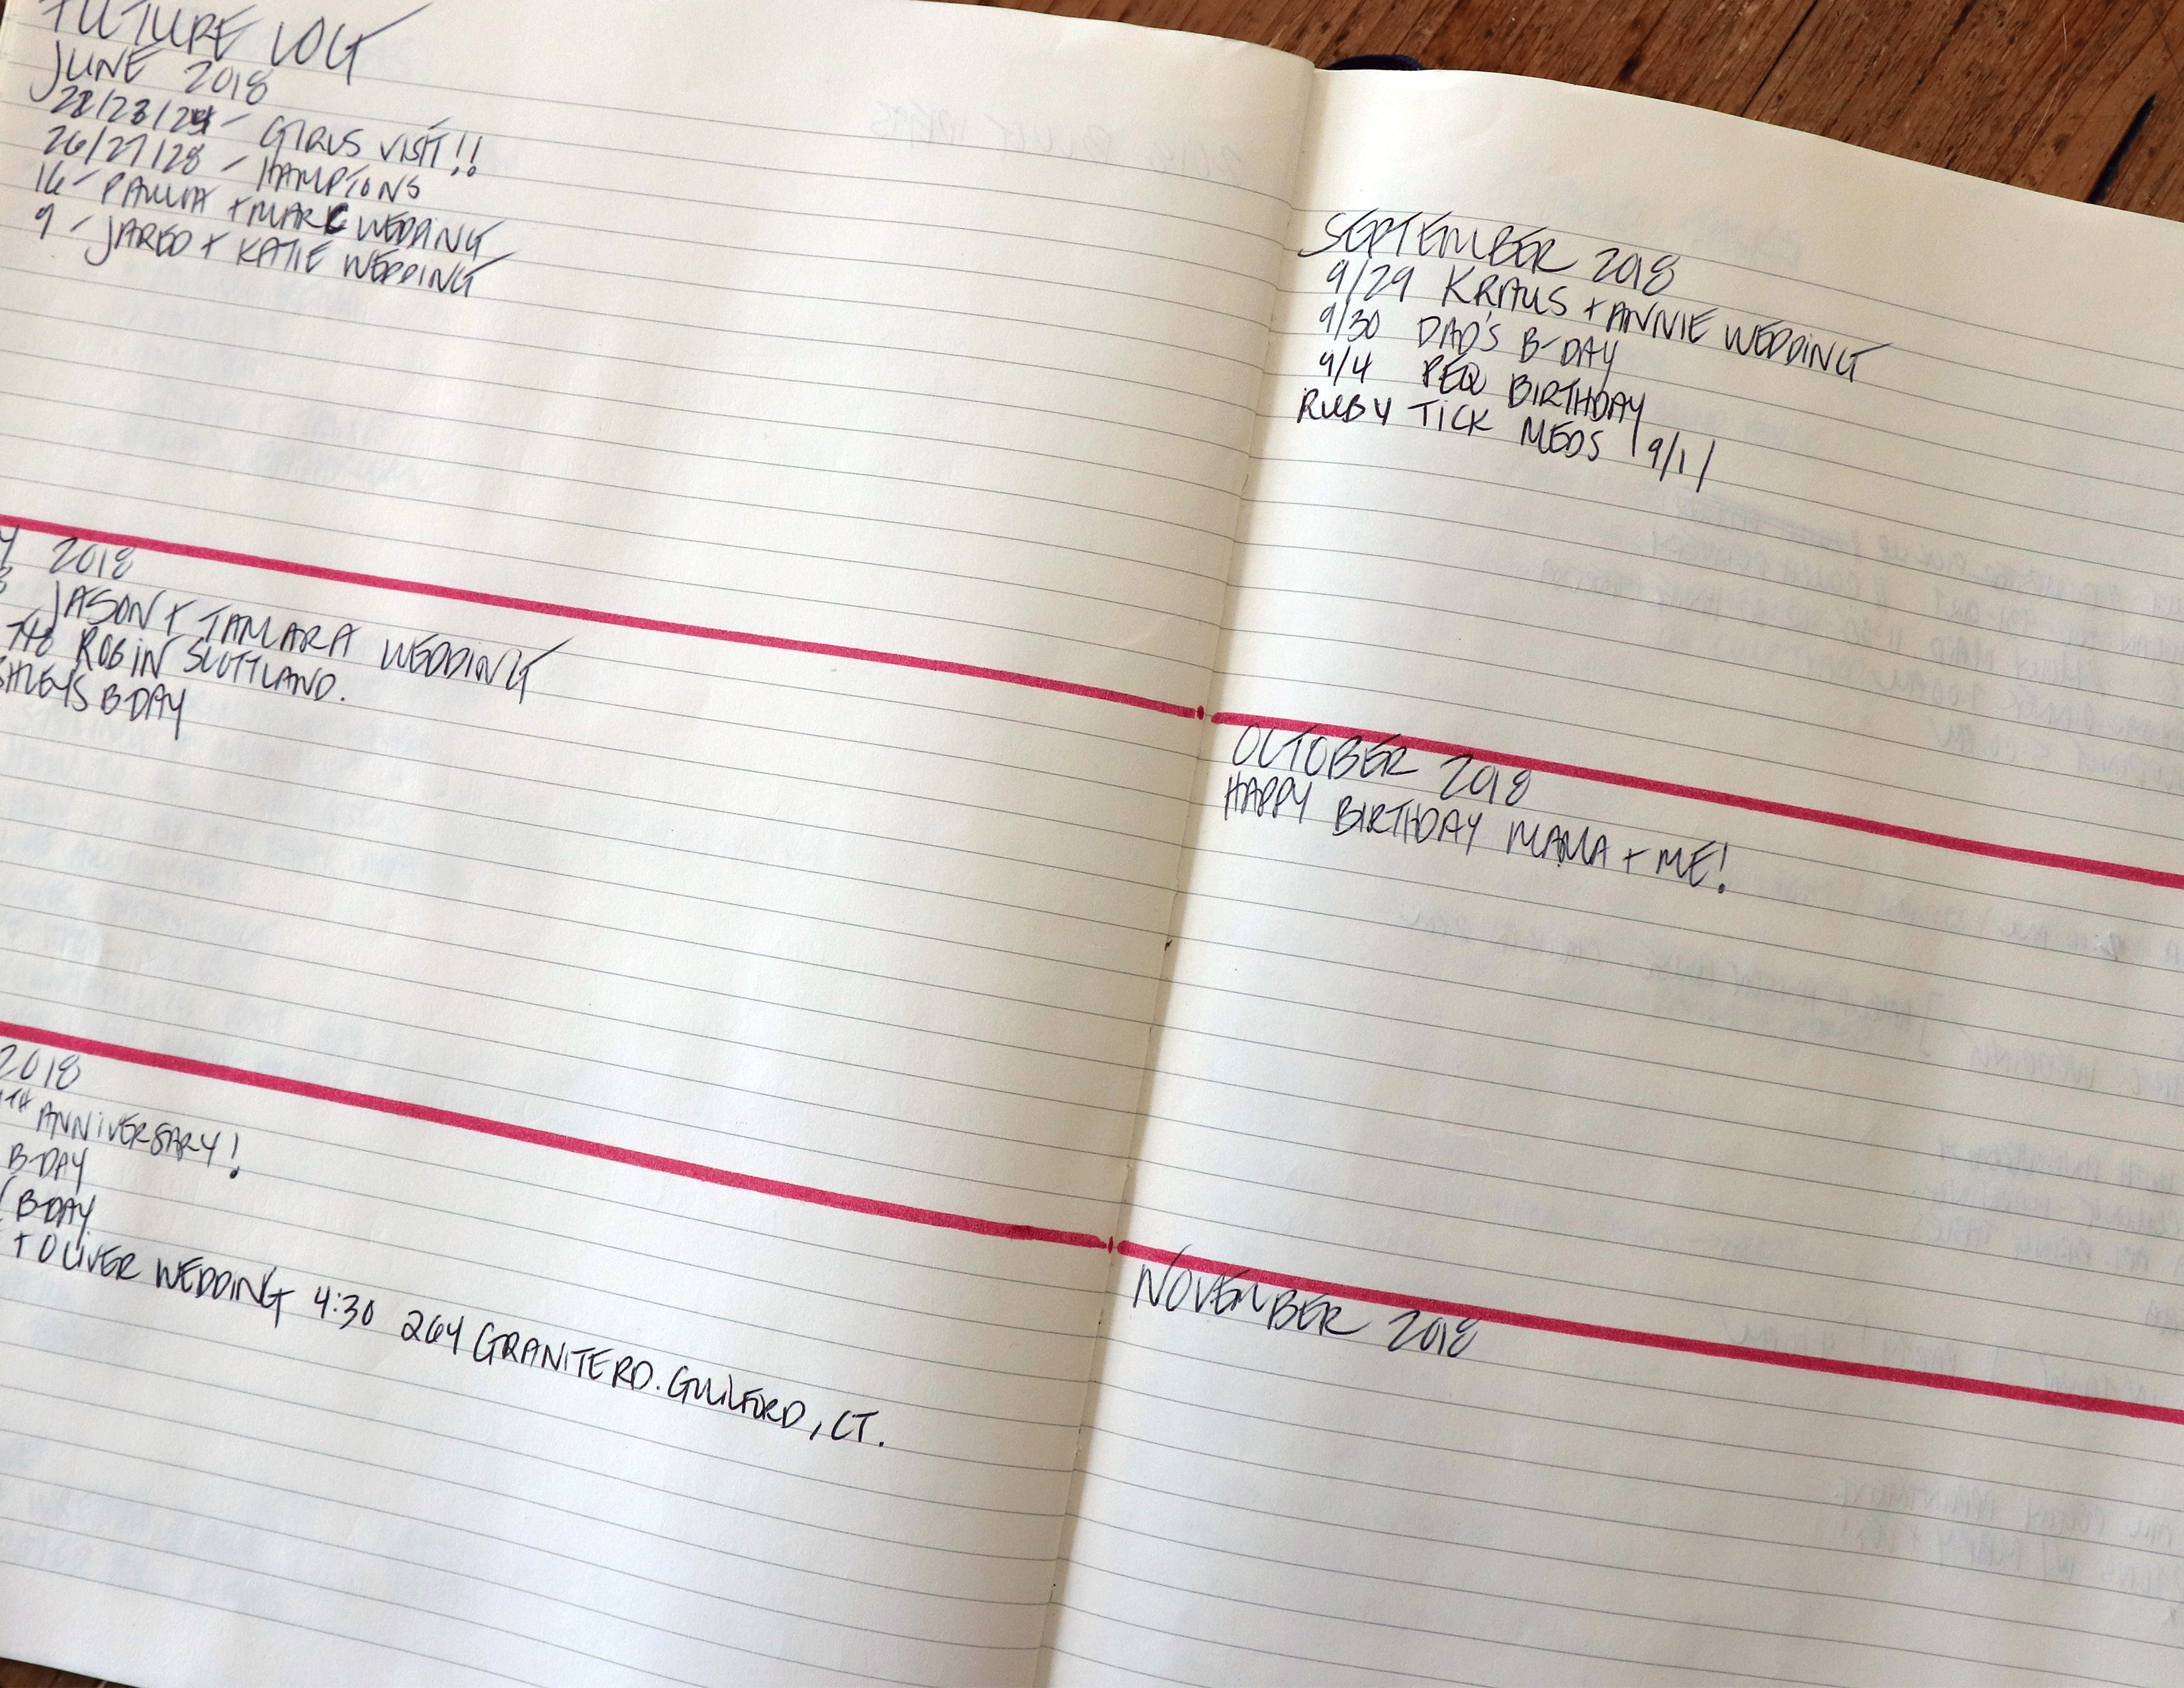 FUTURE LOG
JUNE 2018
22/23/24 - GIRLS VISIT!!
26/27/28 - HAMPTONS
16 - PAULINA + MARC WEDDING
9 - JARED + KATIE WEDDING
2018
JASON + TAMARA WEDDING
ROB IN SCOTTLAND.
B-DAY
2018
TH ANNIVERSARY!
B-DAY
B-DAY
+ OLIVER WEDDING 4:30 264 GRANITE RD. GUILFORD, CT.
SEPTEMBER 2018
9/29 KRAUS + ANNIE WEDDING
9/30 DAD'S B-DAY
9/4 PEQ BIRTHDAY
RUBY TICK MEDS 9/1
OCTOBER 2018
HAPPY BIRTHDAY MAMA + ME!
NOVEMBER 2018